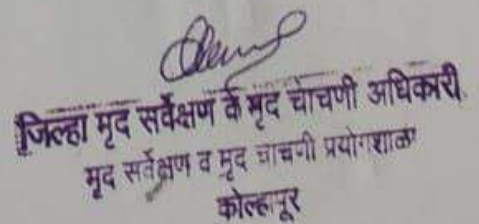 जिल्हा मृद सर्वेक्षण के मृद चाचणी अधिकारी
मृद सर्वेक्षण व मृद चाचणी प्रयोगशाळा
कोल्हापूर